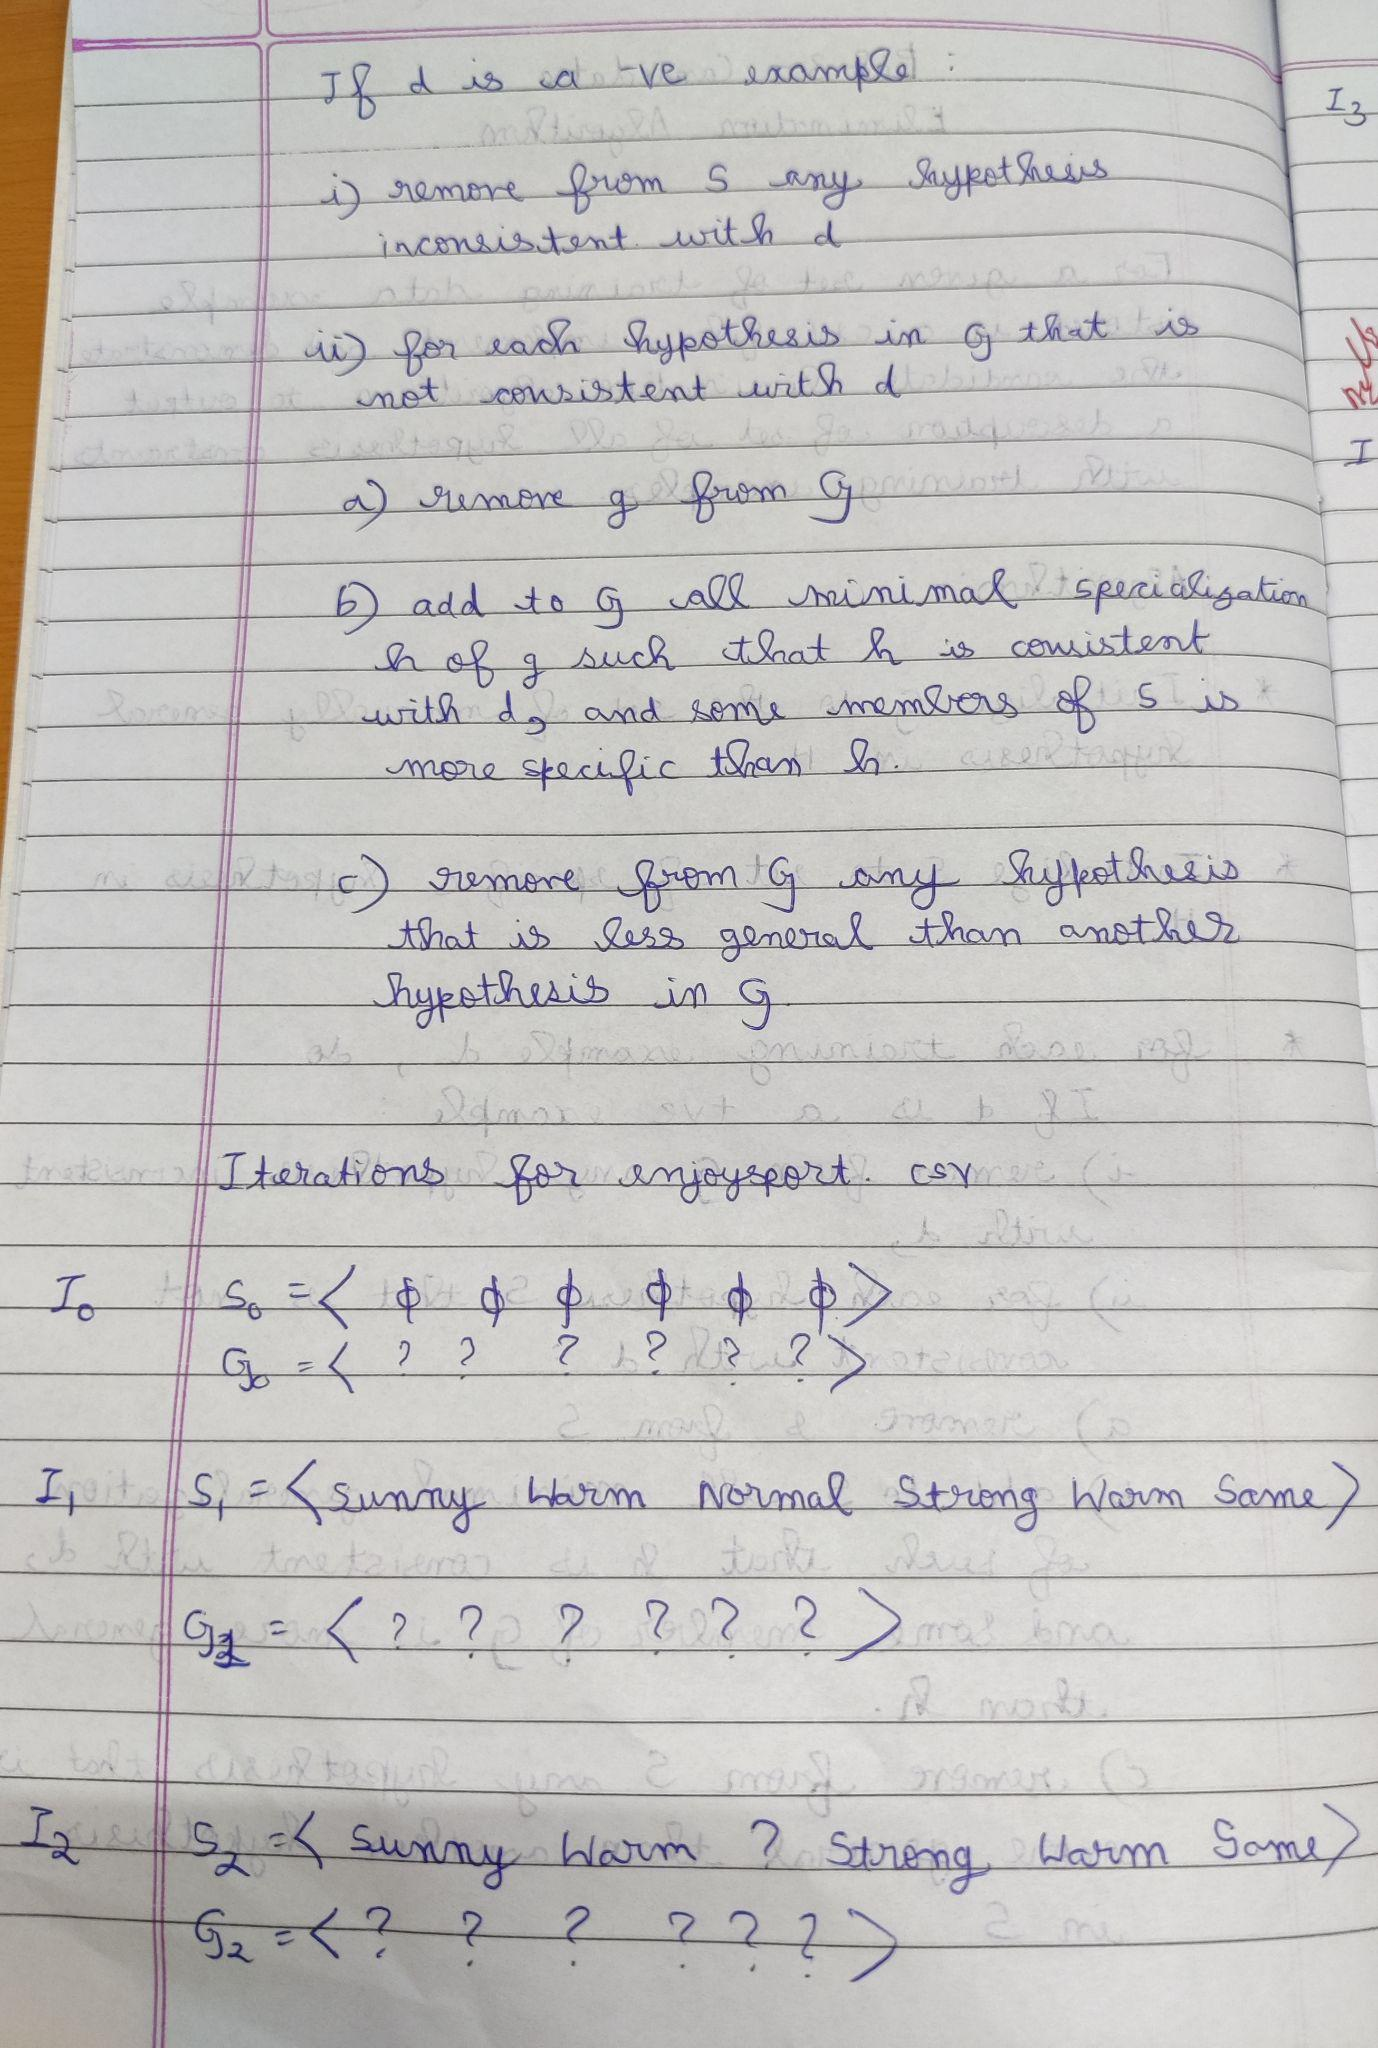 If d is a -ve example :
i) remove from S any hypothesis
inconsistent with d
ii) for each hypothesis in G that is
not consistent with d
a) remove g from G
b) add to G all minimal specialization
h of g such that h is consistent
with d, and some members of S is
more specific than h.
c) remove from G any hypothesis
that is less general than another
hypothesis in G.
Iterations for enjoysport. csv
I0 S0 = < ϕ ϕ ϕ ϕ ϕ ϕ >
G0 = < ? ? ? ? ? ? >
I1 S1 = < Sunny Warm Normal Strong Warm Same >
G1 = < ? ? ? ? ? ? >
I2 S2 = < Sunny Warm ? Strong Warm Same >
G2 = < ? ? ? ? ? ? >
I3
I